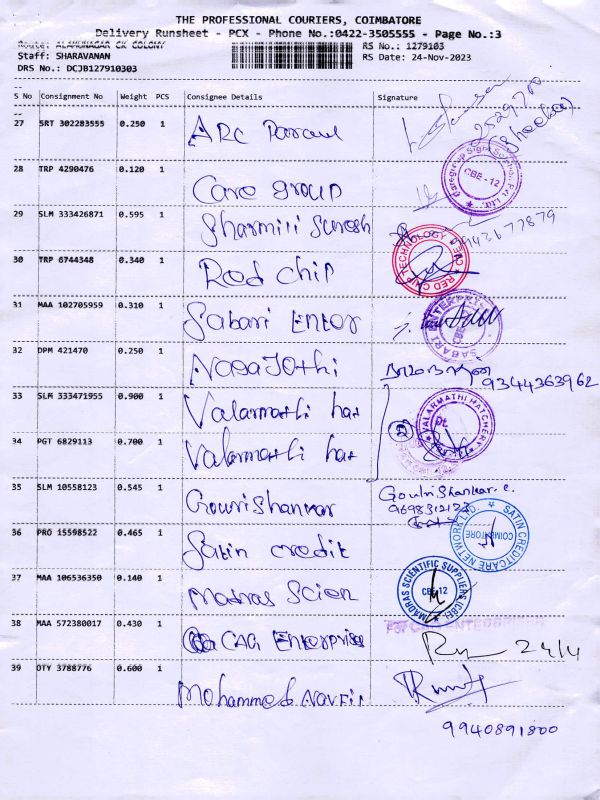 THE PROFESSIONAL COURIERS, COIMBATORE
Delivery Runsheet - PCX - Phone No.:0422-3505555 - Page No.:3
Route: ALAMUNAGAR CK COLONY
RS No.: 1279103
Staff: SHARAVANAN
RS Date: 24-Nov-2023
DRS No.: DCJB127910303
S No Consignment No Weight PCS Consignee Details Signature
27 SRT 302283555 0.250 1 ARC Parcel
2529700
(Sheeba)
28 TRP 4290476 0.120 1 Care group
CBE-12
29 SLM 333426871 0.595 1 Sharmili Suresh
9942677879
30 TRP 6744348 0.340 1 Red chip
RED CHIP TECHNOLOGY
31 MAA 102705959 0.310 1 Sabari Enter
SABARI ENTERPRISES
32 DPM 421470 0.250 1 NagaJothi
9344363962
33 SLM 333471955 0.900 1 Valarmathi hat
VALARMATHI HATCHERY
34 PGT 6829113 0.700 1 Valarmathi hat
35 SLM 10558123 0.545 1 Gourishankar
Gourishankar. c.
9698312123
36 PRO 15598522 0.465 1 Satin credit
SATIN CREDITCARE NETWORK LTD.
COIMBATORE
37 MAA 106536350 0.140 1 Madras Scien
MADRAS SCIENTIFIC SUPPLIERS (CBE)
CBE-12
38 MAA 572380017 0.430 1 CAG Enterprises
24/4
39 OTY 3788776 0.600 1 Mohammed Navfil
9940891800